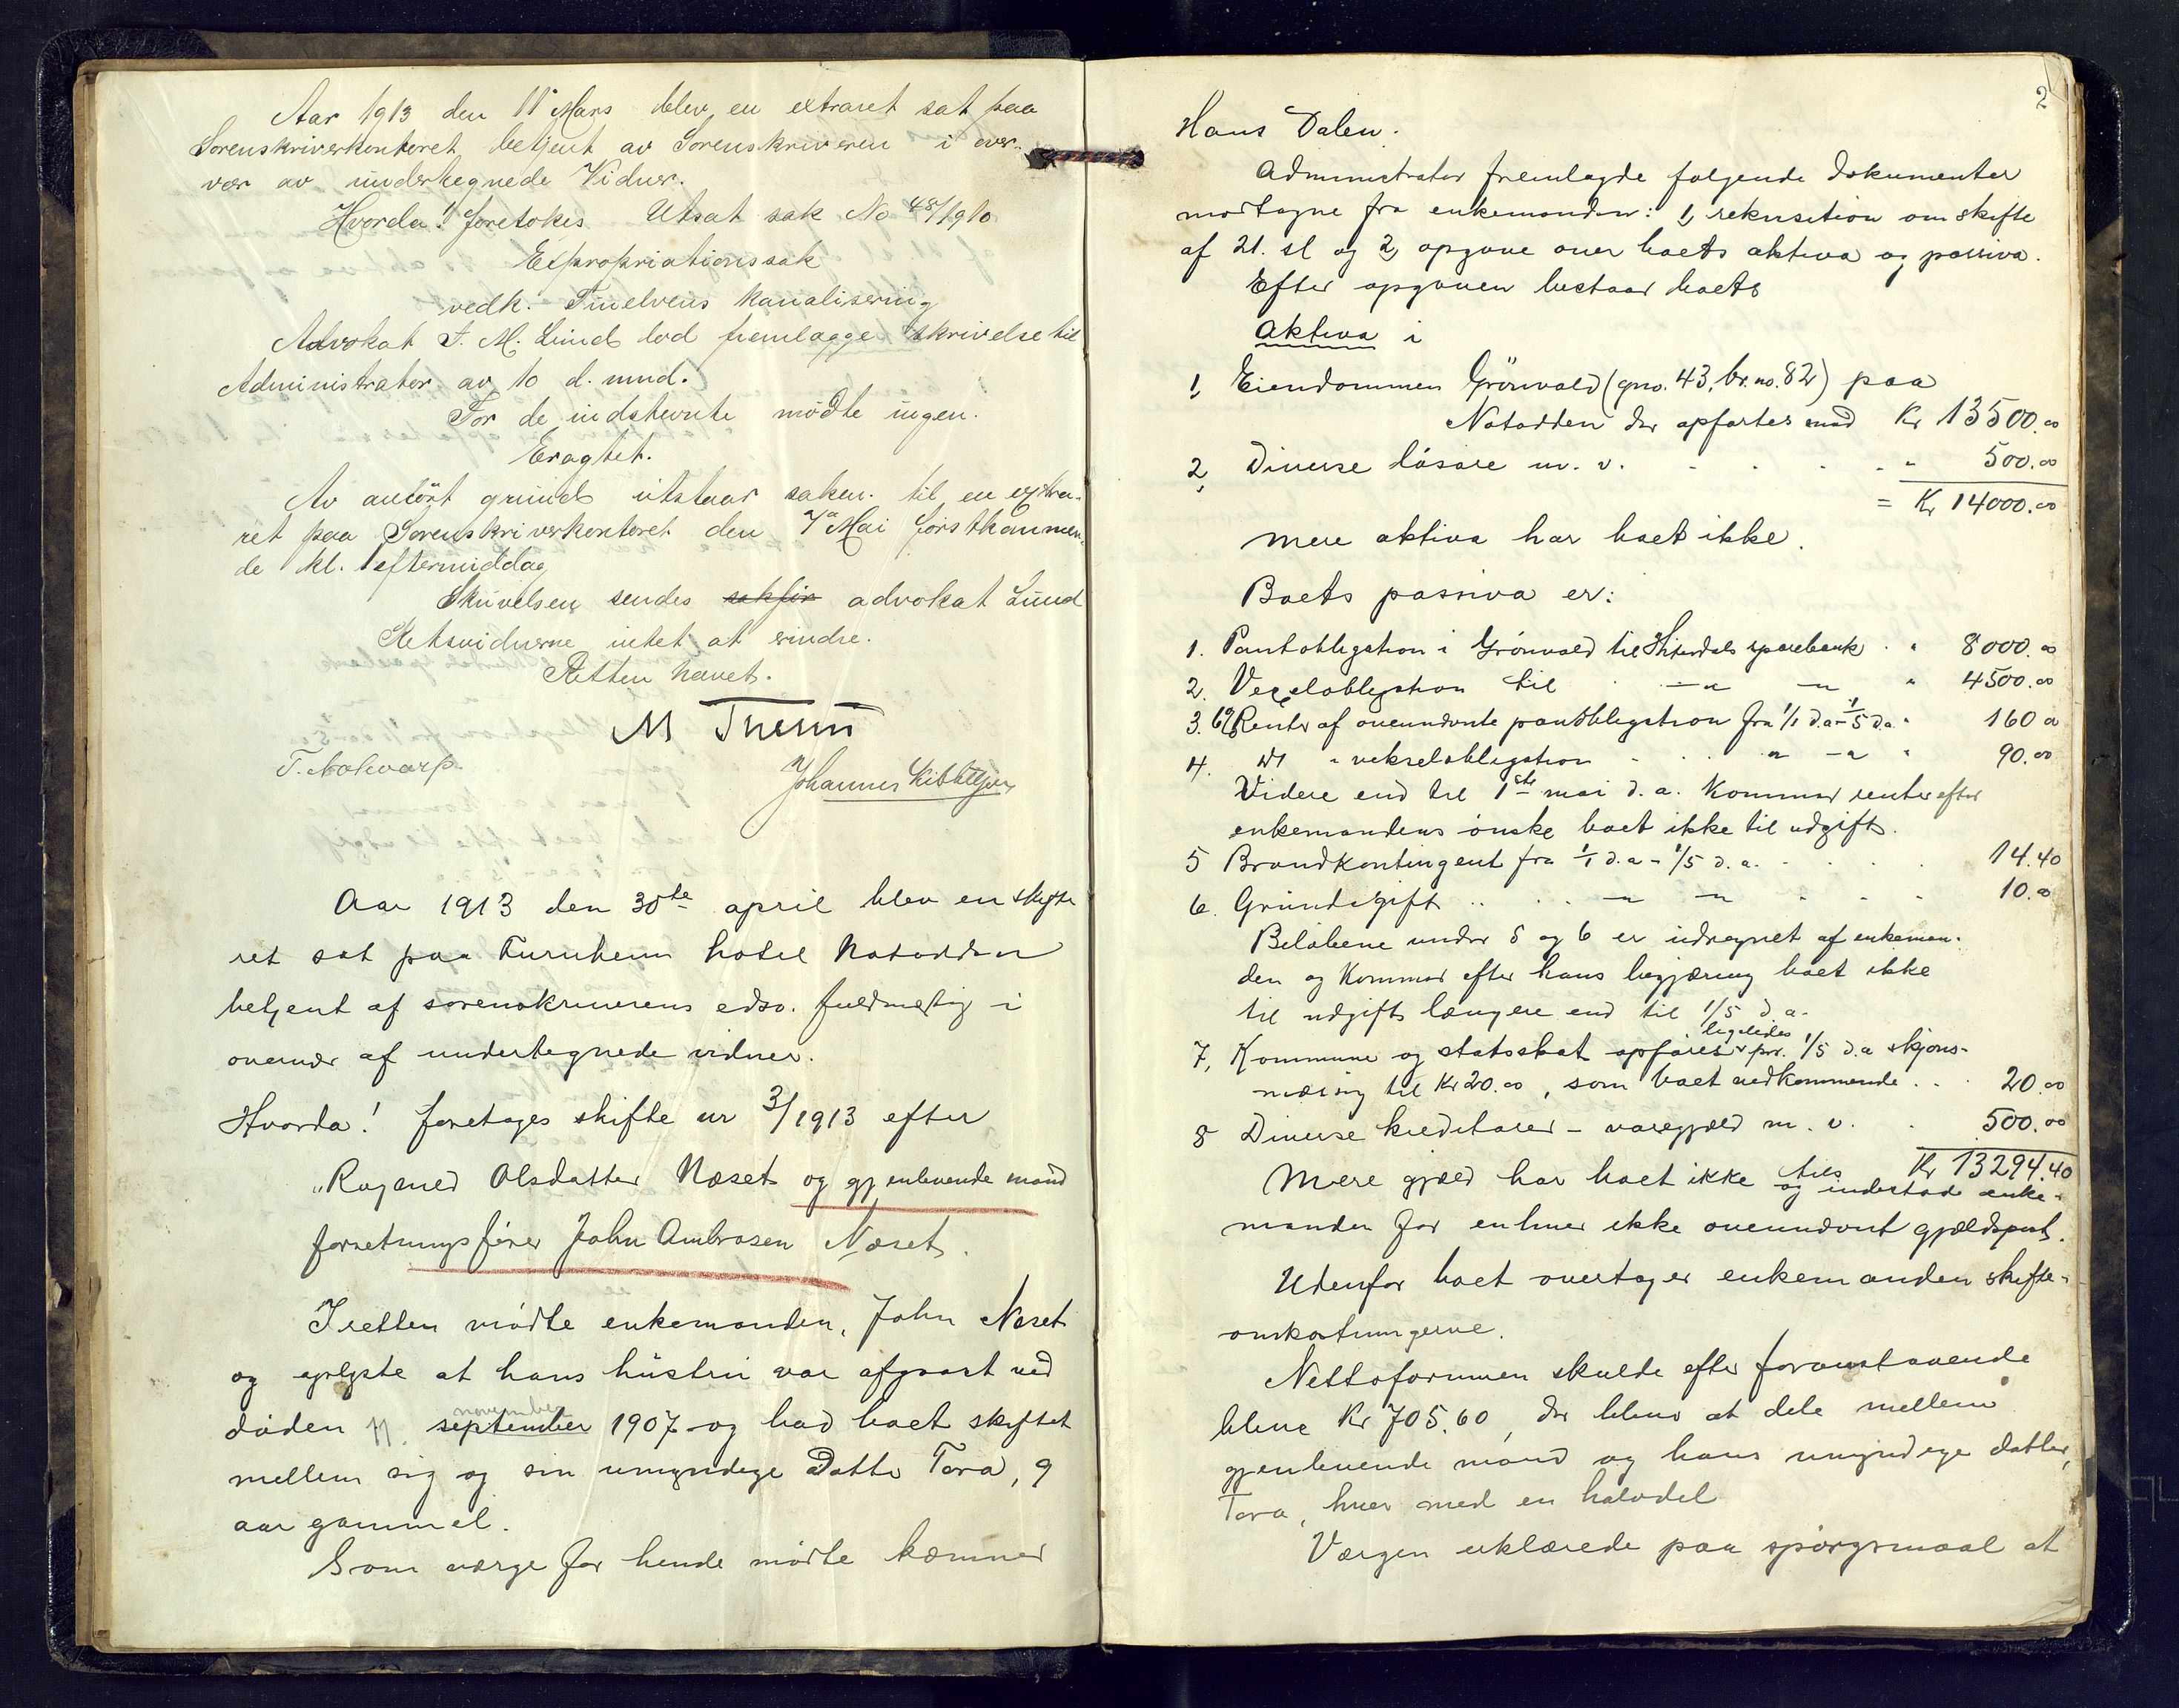 Aar 1913 den 11 Mars blev en extraret sat paa
Sorenskriverkontoret betjent av Sorenskriveren i over-
vær av undertegnede Vidner.
Hvorda! foretokes Utsat sak No 48/1910
Expropriationssak
vedk. Tinelvens kanalisering
Advokat T. M. Lund lod fremlægge skrivelse til
Administrator av 10 d. mnd.
For de indstevnte mødte ingen.
Eragtet.
Av anført grund utstaar saken til en extra-
ret paa Sorenskriverkontoret den 7de Mai førstkommen-
de kl. 1 eftermiddag
Skrivelsen sendes advokat Lund
Retsvidnerne intet at erindre.
Retten hævet.
M
Johannes
Aar 1913 den 30te april blev en skifte
ret sat paa Furuheim hotel Notodden
betjent af sorenskriverens edsv. fuldmægtig i
overvær af undertegnede vidner.
Hvorda! foretages skifte nr 3/1913 efter
"Ragnild Olsdatter Næset og gjenlevende mand
forretningsfører John Ambrosen Næset.
I retten mødte enkemanden, John Næset
og oplyste at hans hustru var afgaaet ved
november
døden 11. september 1907 og bad boet skiftet
mellem sig og sin umyndige Datter Tora, 9
aar gammel.
Som værge for hende mødte kæmner
2
Hans Dalen.
Administrator fremlagde følgende dokumenter
modtagne fra enkemanden: 1, rekvisition om skifte
af 21. sl og 2, opgave over boets aktiva og passiva.
Efter opgaven bestaar boets
Aktiva i
1, Eiendommen Grönvold (gno. 43, br. no. 82) paa
Notodden der opføres med Kr 13500.00
2, Diverse løsøre m. v. . . . . " 500.00
= Kr 14000.00
Mere aktiva har boet ikke.
Boets passiva er:
1. Pantobligation i Grönvold til Hiterdals sparebank . " 8000.00
2. Vexelobligation til — " — " " 4500.00
3. 6% Renter af ovennævnte pantobligation fra 1/1 d.a - 1/5 d.a. " 160 00
4. " vekselobligation . . . " — " " 90.00
Videre end til 1ste mai d. a. kommer renter efter
enkemandens ønske boet ikke til udgift.
5 Brandkontingent fra 1/1 d.a - 1/5 d.a. . . . 14.40
6. Grundavgift . . . . — " — " . . . 10.00
Beløbene under 5 og 6 er udregnet af enkeman-
den og kommer efter hans begjæring boet ikke
til udgift længere end til 1/5 d.a.
ligeledes
7, Kommune og statsskat opføres pr. 1/5 d.a skjøns-
mæssig til Kr 20.00, som boet vedkommende . . 20.00
8 Diverse kreditorer - varegjæld m. v. . 500.00
tils Kr 13294.40
Mere gjæld har boet ikke og indestod enke-
manden for enhver ikke ovennævnt gjældspost.
Udenfor boet overtager enkemanden skifte-
omkostningerne.
Nettoformuen skulde efter foranstaaende
blive Kr 705.60, der blive at dele mellem
gjenlevende mand og hans umyndige datter,
Tora, hver med en halvdel
Værgen erklærede paa spørgsmaal at